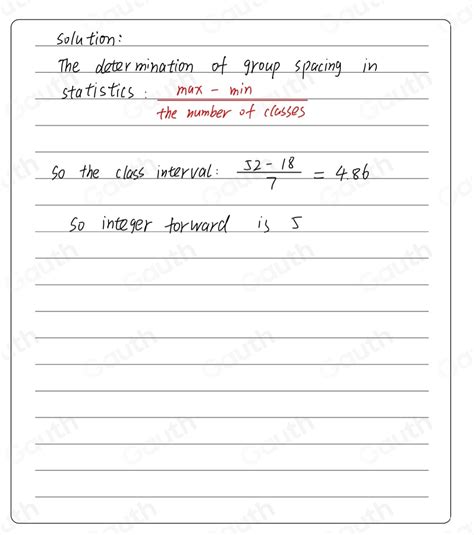 Solution:
The determination of group spacing in
statistics: max - min
the number of classes
So the class interval: 52-18 / 7 = 4.86
So integer forward is 5
Gauth